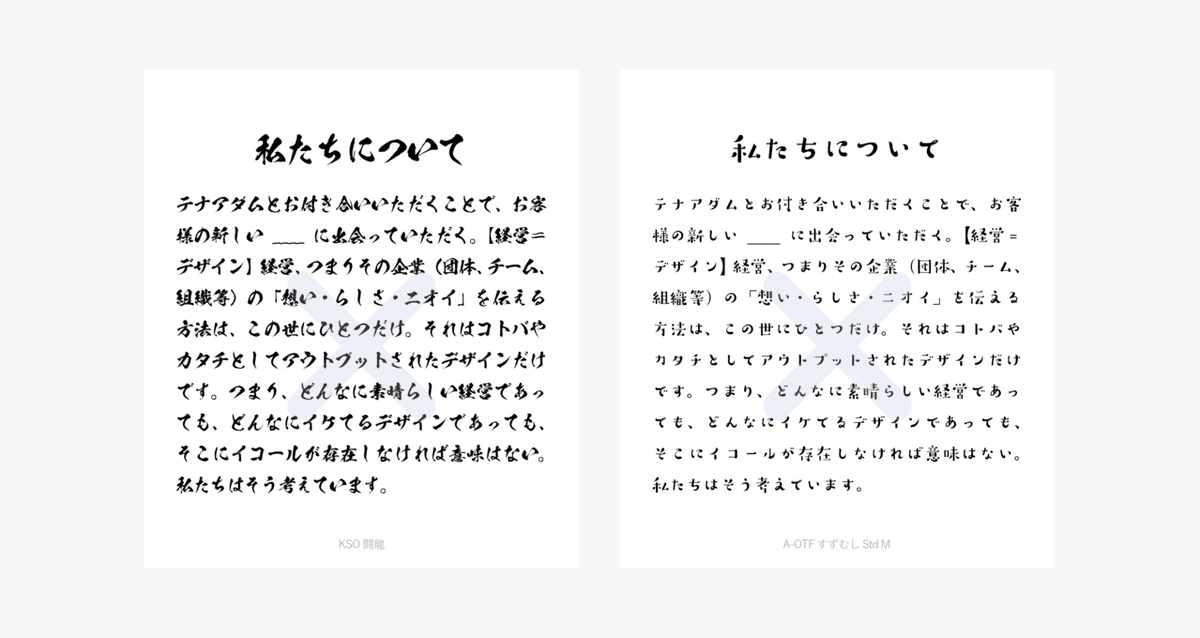 私たちについて
テナアダムとお付き合いいただくことで、お客
様の新しい ____ に出会っていただく。【経営＝
デザイン】経営、つまりその企業（団体、チーム、
組織等）の「想い・らしさ・ニオイ」を伝える
方法は、この世にひとつだけ。それはコトバや
カタチとしてアウトプットされたデザインだけ
です。つまり、どんなに素晴らしい経営であっ
ても、どんなにイケてるデザインであっても、
そこにイコールが存在しなければ意味はない。
私たちはそう考えています。
KSO 闘龍
私たちについて
テナアダムとお付き合いいただくことで、お客
様の新しい ____ に出会っていただく。【経営＝
デザイン】経営、つまりその企業（団体、チーム、
組織等）の「想い・らしさ・ニオイ」を伝える
方法は、この世にひとつだけ。それはコトバや
カタチとしてアウトプットされたデザインだけ
です。つまり、どんなに素晴らしい経営であっ
ても、どんなにイケてるデザインであっても、
そこにイコールが存在しなければ意味はない。
私たちはそう考えています。
A-OTF すずむし Std M